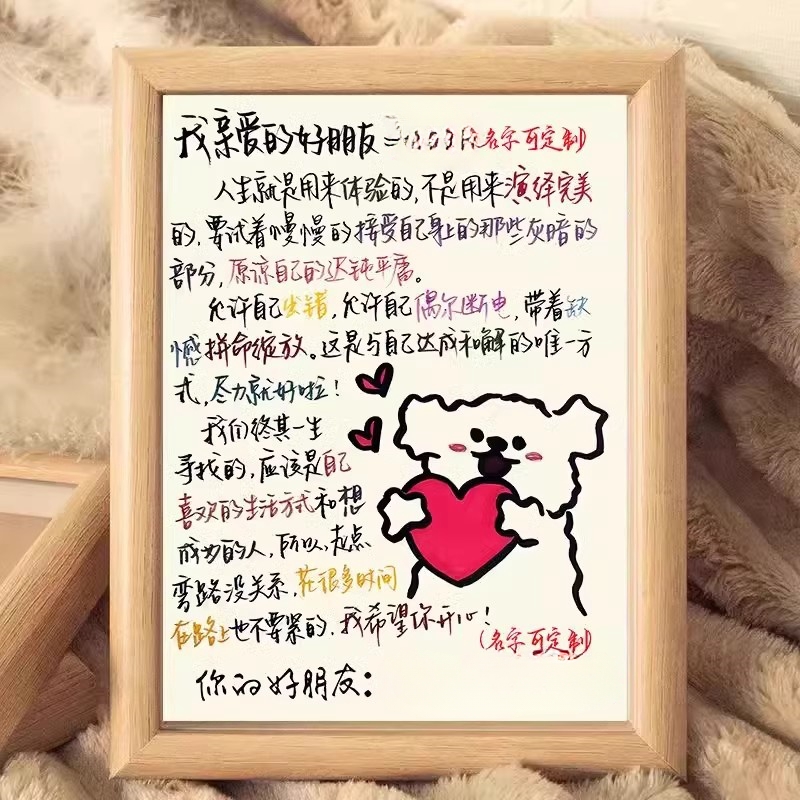 我亲爱的好朋友 (名字可定制)
人生就是用来体验的，不是用来演绎完美
的，要试着慢慢的接受自己身上的那些灰暗的
部分，原谅自己的迟钝平庸。
允许自己出错，允许自己偶尔断电，带着缺
憾拼命绽放。这是与自己达成和解的唯一方
式，尽力就好啦！
我们终其一生
寻找的，应该是自己
喜欢的生活方式和想
成为的人，所以，走点
弯路没关系，花很多时间
在路上也不要紧的，我希望你开心！
(名字可定制)
你的好朋友：